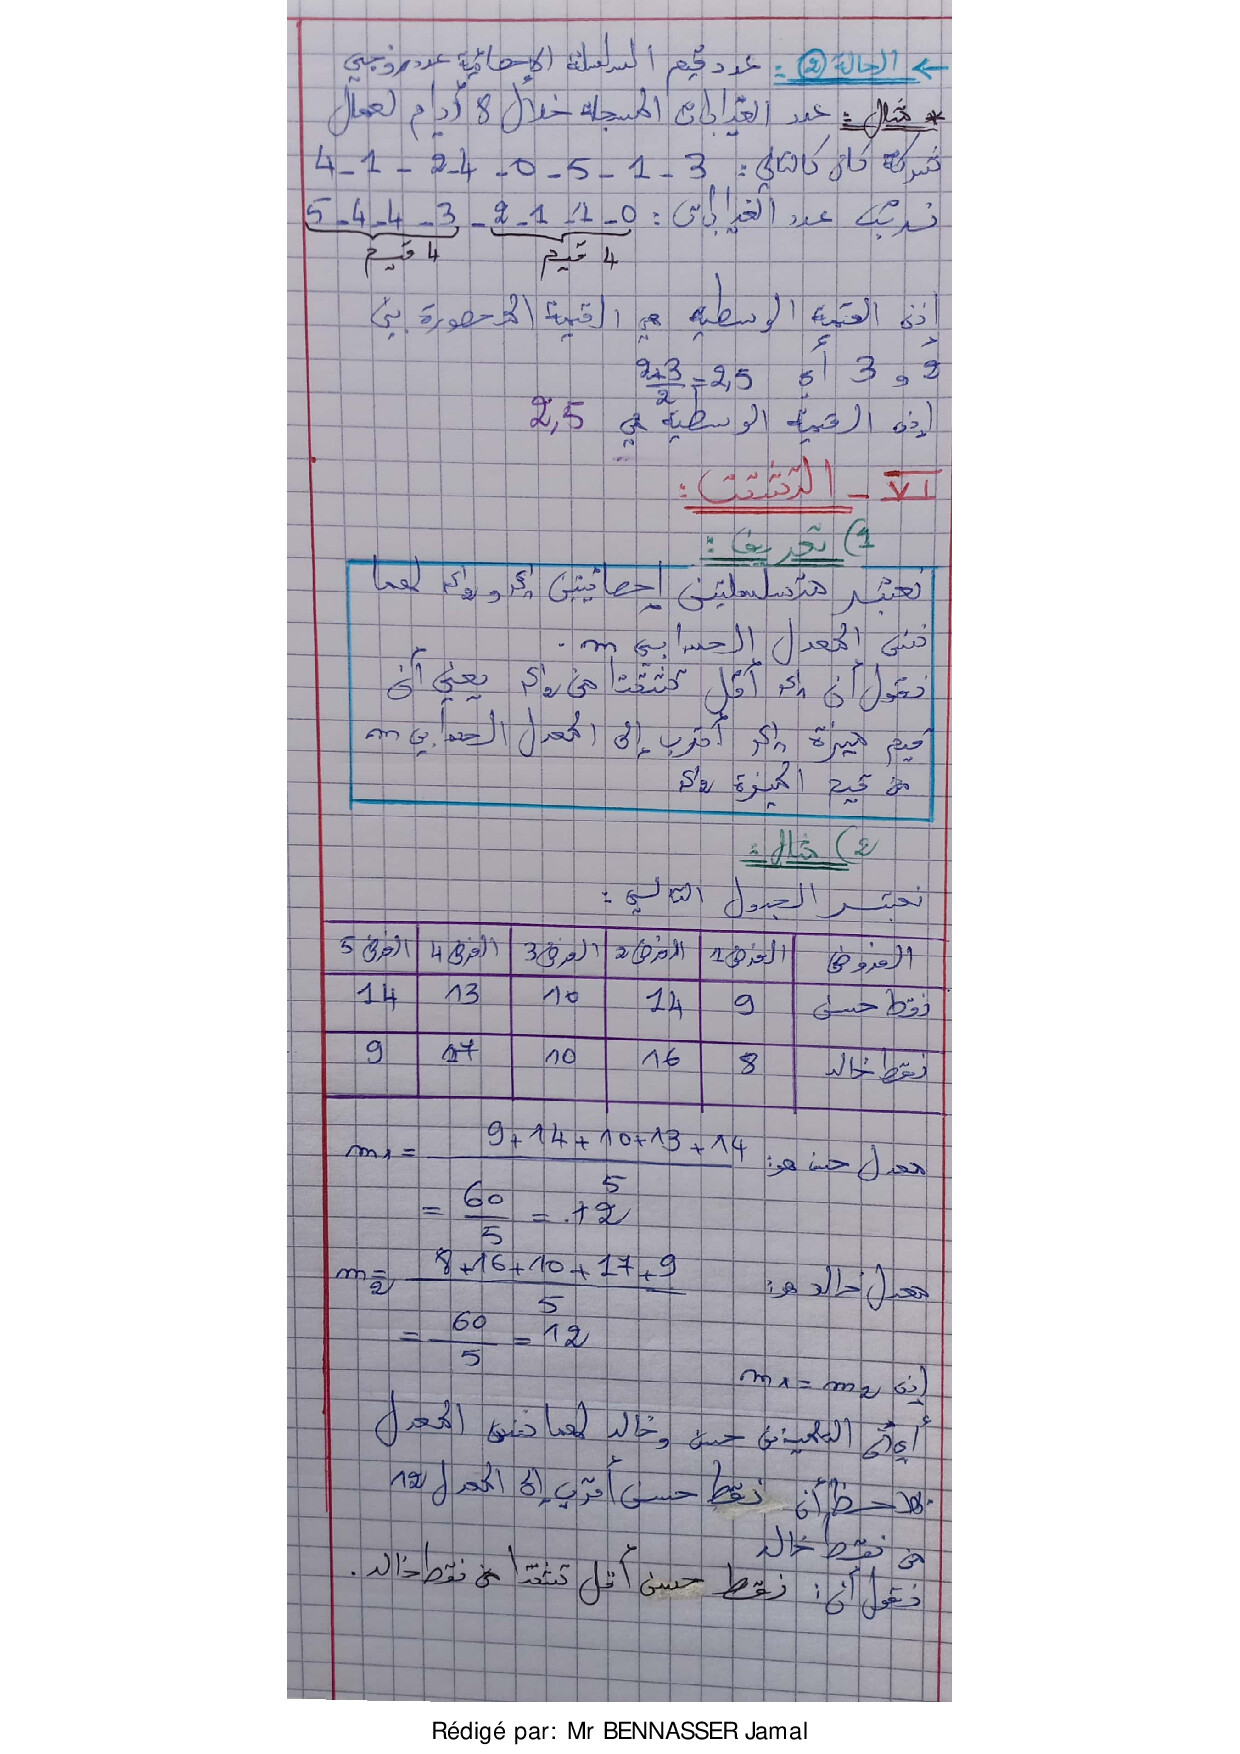 ← الحالة ② : عدد قيم السلسلة الإحصائية عدد زوجي
* مثال : عدد الغيابات المسجلة خلال 8 أيام لعمال
شركة كان كالتالي : 3 - 1 - 5 - 0 - 4 - 2 - 1 - 4
ترتيب عدد الغيابات : 0 - 1 - 1 - 2 - 3 - 4 - 4 - 5
4 قيم 4 قيم
إذن القيمة الوسطية هي القيمة المحصورة بين
2 و 3 أي 2+3/2 = 2,5
إذن القيمة الوسطية هي 2,5
VI - التشتت :
1) تعريف :
نعتبر متسلسلتين إحصائيتين S1 و S2 لهما
نفس المعدل الحسابي m .
نقول أن S1 أقل تشتتا من S2 يعني أن
قيم ميزة S1 أقرب إلى المعدل الحسابي m
من قيم الميزة S2
2) مثال :
نعتبر الجدول التالي :
الفروض الفرض 1 الفرض 2 الفرض 3 الفرض 4 الفرض 5
نقط حسن 9 14 10 13 14
نقط خالد 8 16 10 17 9
معدل حسن هو : m1 = 9+14+10+13+14/5
= 60/5 = 12
معدل خالد هو : m2 = 8+16+10+17+9/5
= 60/5 = 12
إذن m1 = m2
أي أن التلميذين حسن وخالد لهما نفس المعدل
نلاحظ أن نقط حسن أقرب إلى المعدل 12
من نقط خالد
نقول أن : نقط حسن أقل تشتتا من نقط خالد .
Rédigé par: Mr BENNASSER Jamal